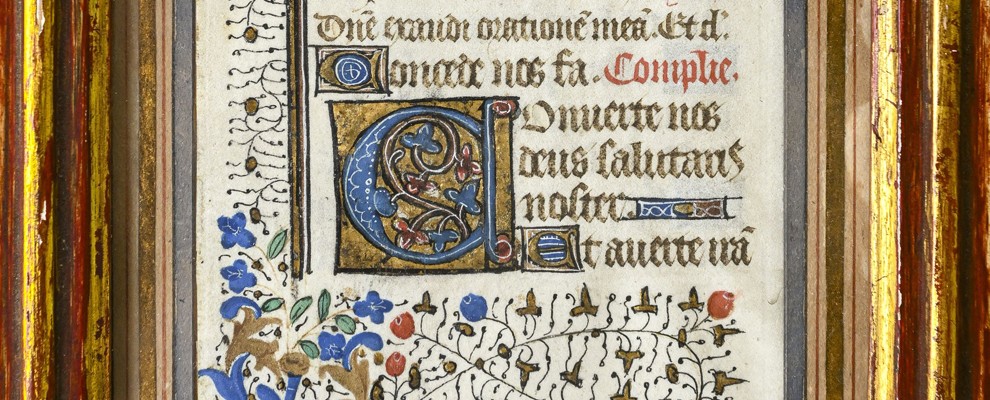 Dñe exaudi orationẽ meã. Et d̃.
Concede nos fa. Complie.
Onuerte nos
deus salutaris
noster
Et auerte irã